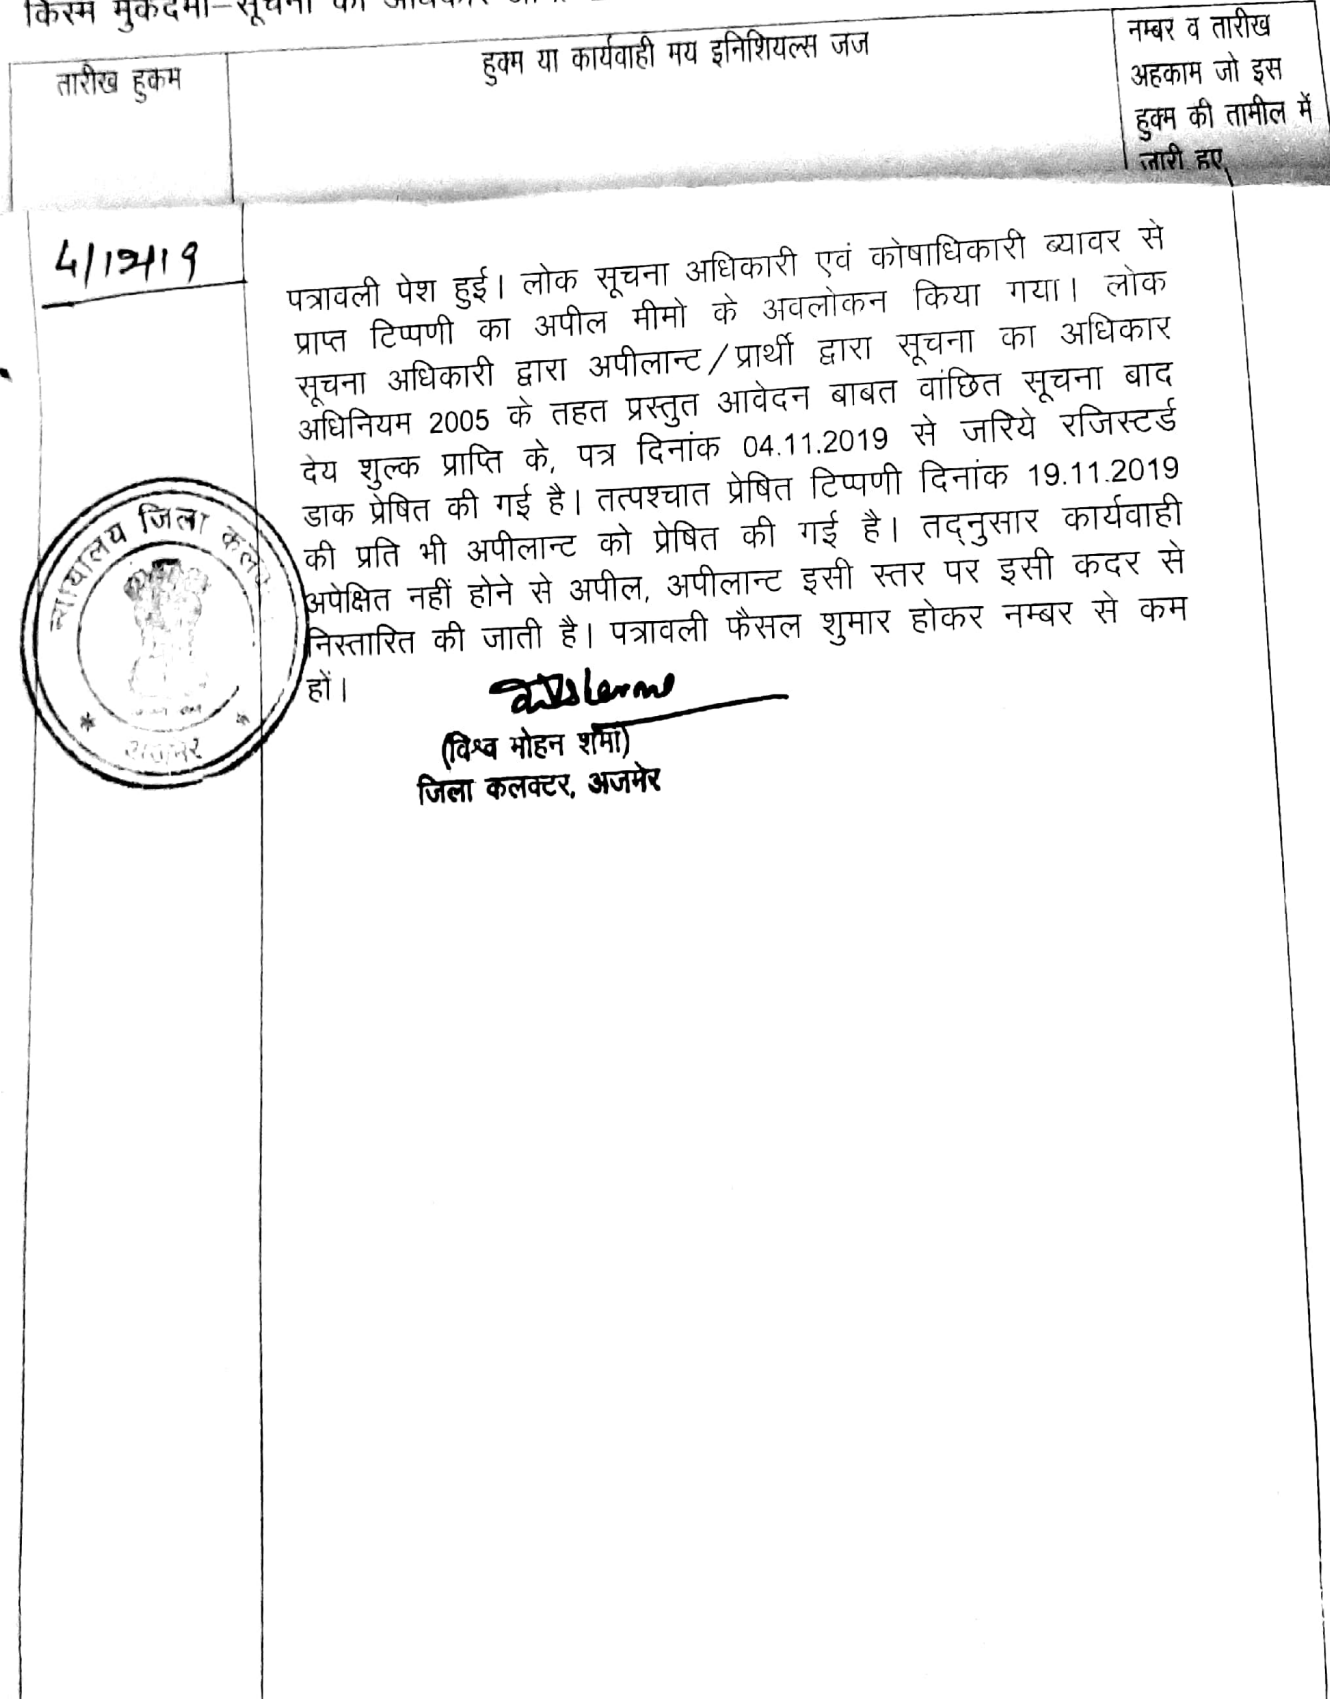 किस्म मुकदमा–सूचना का अधिकार
तारीख हुकम
हुक्म या कार्यवाही मय इनिशियल्स जज
नम्बर व तारीख
अहकाम जो इस
हुक्म की तामील में
जारी हुए
4/12/19
पत्रावली पेश हुई। लोक सूचना अधिकारी एवं कोषाधिकारी ब्यावर से
प्राप्त टिप्पणी का अपील मीमो के अवलोकन किया गया। लोक
सूचना अधिकारी द्वारा अपीलान्ट/प्रार्थी द्वारा सूचना का अधिकार
अधिनियम 2005 के तहत प्रस्तुत आवेदन बाबत वांछित सूचना बाद
देय शुल्क प्राप्ति के, पत्र दिनांक 04.11.2019 से जरिये रजिस्टर्ड
डाक प्रेषित की गई है। तत्पश्चात प्रेषित टिप्पणी दिनांक 19.11.2019
की प्रति भी अपीलान्ट को प्रेषित की गई है। तद्नुसार कार्यवाही
अपेक्षित नहीं होने से अपील, अपीलान्ट इसी स्तर पर इसी कदर से
निस्तारित की जाती है। पत्रावली फैसल शुमार होकर नम्बर से कम
हों।
न्यायालय जिला कलेक्
अजमेर
(विश्व मोहन शर्मा)
जिला कलक्टर, अजमेर